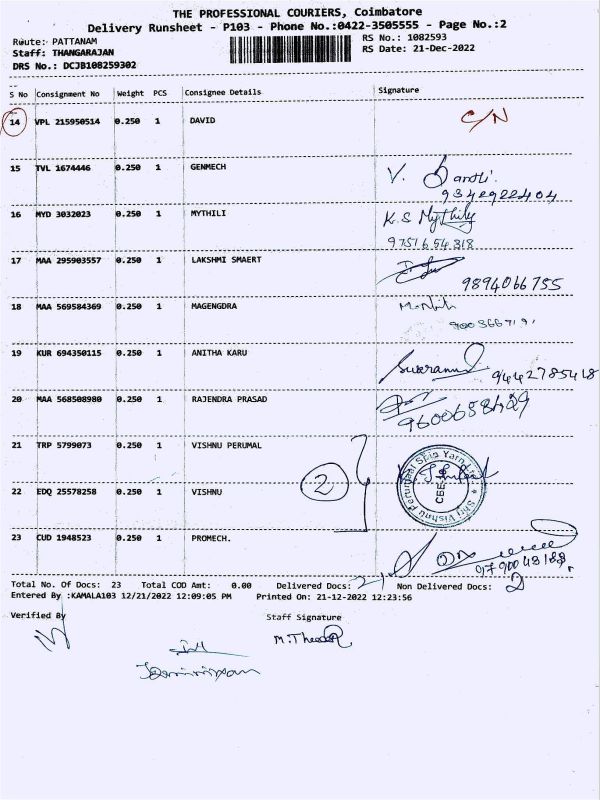 THE PROFESSIONAL COURIERS, Coimbatore
Delivery Runsheet - P103 - Phone No.:0422-3505555 - Page No.:2
Route: PATTANAM RS No.: 1082593
Staff: THANGARAJAN RS Date: 21-Dec-2022
DRS No.: DCJB108259302
S No Consignment No Weight PCS Consignee Details Signature
14 VPL 215950514 0.250 1 DAVID C/N
15 TVL 1674446 0.250 1 GENMECH V.
9342922404
16 MYD 3032023 0.250 1 MYTHILI K.S Mythily
9751654318
17 MAA 295903557 0.250 1 LAKSHMI SMAERT
9894066755
18 MAA 569584369 0.250 1 MAGENGDRA
19 KUR 694350115 0.250 1 ANITHA KARU
9442785418
20 MAA 568508980 0.250 1 RAJENDRA PRASAD
21 TRP 5799073 0.250 1 VISHNU PERUMAL
2
Shri Vishnu Perumal Spip Yarn
CBE
22 EDQ 25578258 0.250 1 VISHNU
23 CUD 1948523 0.250 1 PROMECH.
Total No. Of Docs: 23 Total COD Amt: 0.00 Delivered Docs: 21 Non Delivered Docs: 2
Entered By :KAMALA103 12/21/2022 12:09:05 PM Printed On: 21-12-2022 12:23:56
Verified By Staff Signature